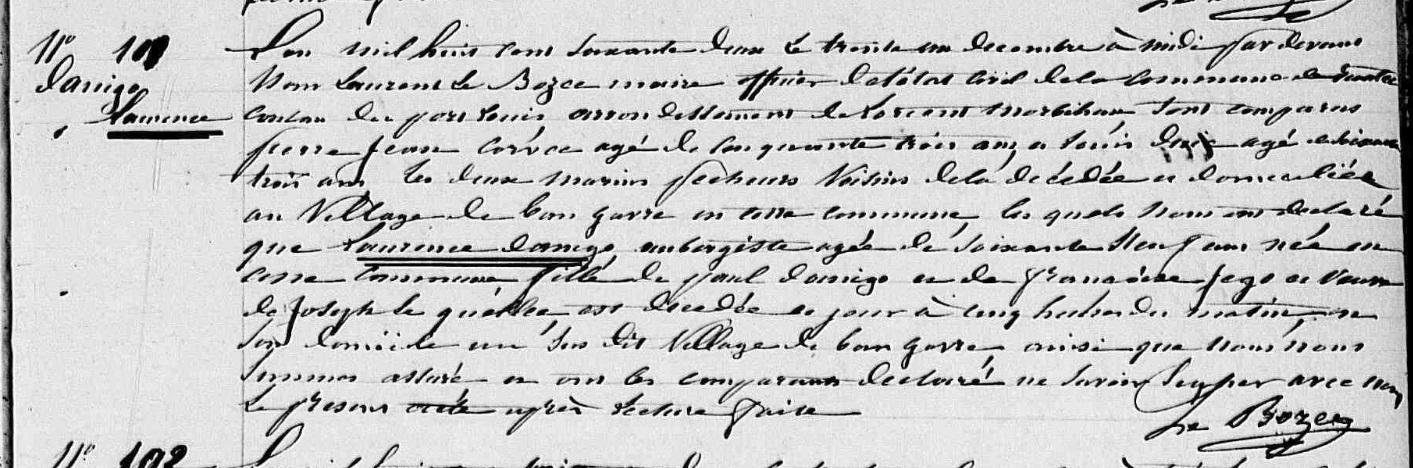 N° 101
Danigo
Laurence
L'an mil huit cent soixante deux le trente un decembre à midi par devant
Nous Laurent Le Bozec maire officier de l'état Civil de la Commune de
Canton du port Louis arrondissement de Lorient Morbihan Sont comparus
pierre Jean agé de cinquante trois ans et Louis agé de soixante
trois ans les deux marins pecheurs Voisins de la décédée et domiciliés
au Village de ban gavre en cette commune les quels nous ont declaré
que Laurence danigo aubergiste agée de Soixante Neuf ans née en
cette Commune fille de paul danigo et de francoise Jego et veuve
de Joseph le est decedée ce jour à cinq heures du matin en
Son domicile au Sus dit Village de ban gavre ainsi que nous nous
Sommes assuré et ont les comparants declaré ne Savoir Signer avec nous
Le present acte après lecture faite
Le Bozec
N° 102